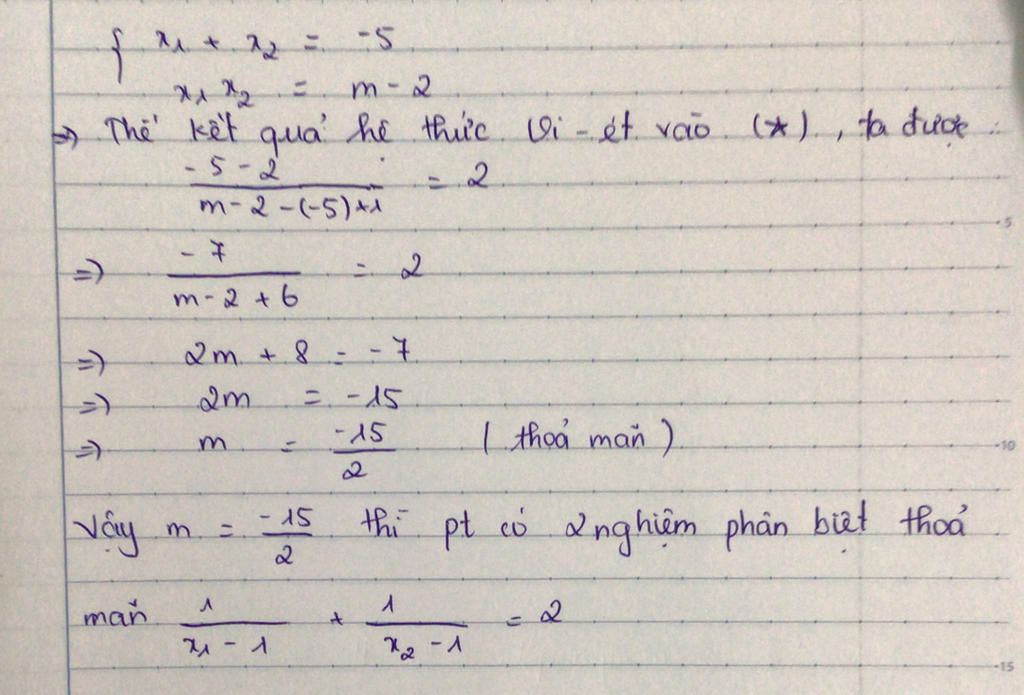 { x₁ + x₂ = -5
x₁ x₂ = m - 2
=> Thế kết quả hệ thức Vi - ét vào (*), ta được :
(-5 - 2)/(m - 2 - (-5) + 1) = 2
=> (-7)/(m - 2 + 6) = 2
=> 2m + 8 = -7
=> 2m = -15
=> m = (-15)/2 ( thoả mãn )
Vậy m = (-15)/2 thì pt có 2 nghiệm phân biệt thoả
mãn 1/(x₁ - 1) + 1/(x₂ - 1) = 2
-5
-10
-15